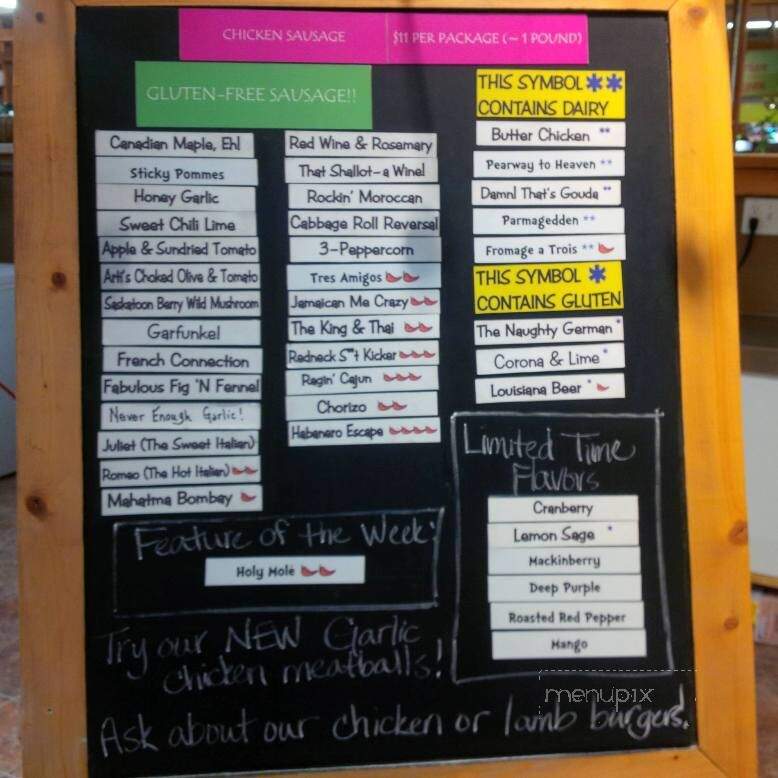 CHICKEN SAUSAGE $11 PER PACKAGE (~ 1 POUND)
GLUTEN-FREE SAUSAGE!!
Canadian Maple, Eh!
Sticky Pommes
Honey Garlic
Sweet Chili Lime
Apple & Sundried Tomato
Arti's Choked Olive & Tomato
Saskatoon Berry Wild Mushroom
Garfunkel
French Connection
Fabulous Fig 'N Fennel
Never Enough Garlic!
Juliet (The Sweet Italian)
Romeo (The Hot Italian)
Mahatma Bombay
Red Wine & Rosemary
That Shallot-a Wine!
Rockin' Moroccan
Cabbage Roll Reversal
3-Peppercorn
Tres Amigos
Jamaican Me Crazy
The King & Thai
Redneck S**t Kicker
Ragin' Cajun
Chorizo
Habanero Escape
THIS SYMBOL **
CONTAINS DAIRY
Butter Chicken **
Pearway to Heaven **
Damn! That's Gouda **
Parmagedden **
Fromage a Trois **
THIS SYMBOL *
CONTAINS GLUTEN
The Naughty German *
Corona & Lime *
Louisiana Beer *
Limited Time
Flavors
Cranberry
Lemon Sage *
Mackinberry
Deep Purple
Roasted Red Pepper
Mango
Feature of the Week:
Holy Mole
Try our NEW Garlic
chicken meatballs!
Ask about our chicken or lamb burgers.
menupix